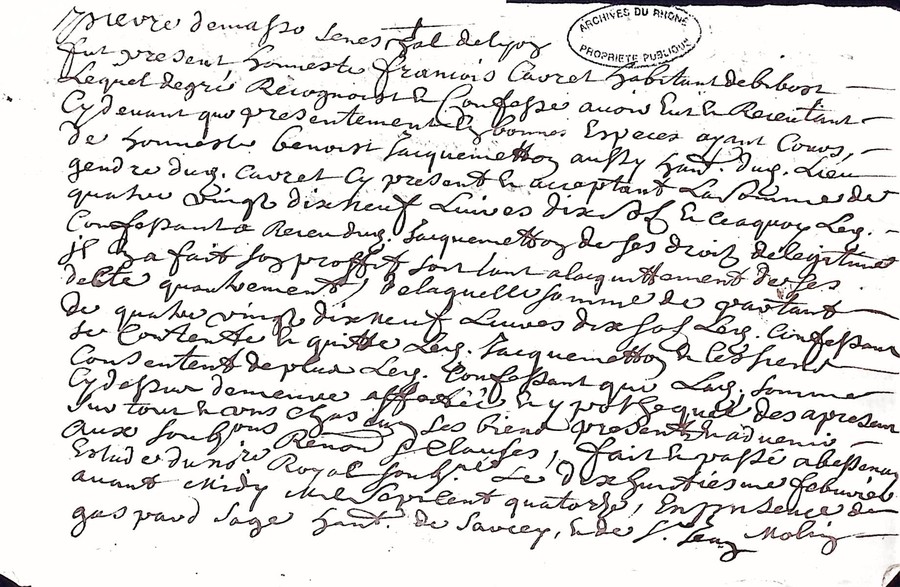 ARCHIVES DU RHÔNE
PROPRIÉTÉ PUBLIQUE
pierre demasso seneschal delyon
fut present honneste francois Cavret habitant debibost
Lequel degré Recognoist et Confesse avoir Eut et Receu tant
Cy devant que presentement En bonnes Especes ayant Cours,
de honneste benoist Jacquemetton aussy hant. dud. Lieu
gendre dud. Cavret Cy present et acceptant La somme de
quatre vingt dix neuf Livres dix sols En ce a quoy Led.
Confessant a dud. Jacquemetton de ses droits de legitime
il a fait son proffit sont tant alacquittement de ses
debte qu'autrement, delaquelle somme de partant
de quatre vingt dix neuf Livres dix sols Led. Confessant
se Contente Et quitte Led. Jacquemetton Et Les siens
Consentent de plus Led. Confessant que Lad. somme
Cy dessus demeure affectée Et ypothequée des apresent
sur tout Et uns Chascun ses biens presents Et advenir
aux soubzons Renon. & Clauses, fait Et passé a bessenay
Estude du nore Royal soubz.né Le dix huitiesme febvrier
avant Midy Mil Sept Cent quatorze, En presence de
gaspard Sage hant. de Savcey, Et de Sr. Molin